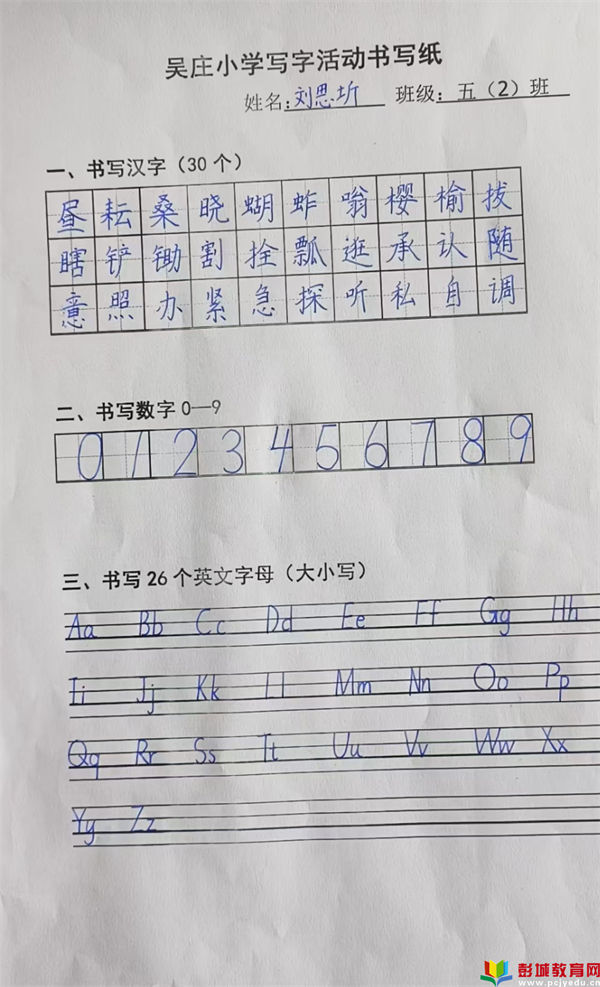 吴庄小学写字活动书写纸
姓名:刘思圻 班级:五（2）班
一、书写汉字（30个）
昼耘桑晓蝴蚱嗡樱榆拔
瞎铲锄割拴瓢逛承认随
意照办紧急探听私自调
二、书写数字0—9
0 1 2 3 4 5 6 7 8 9
三、书写26个英文字母（大小写）
Aa Bb Cc Dd Ee Ff Gg Hh
Ii Jj Kk Ll Mm Nn Oo Pp
Qq Rr Ss Tt Uu Vv Ww Xx
Yy Zz
彭城教育网
www.pcjyedu.cn